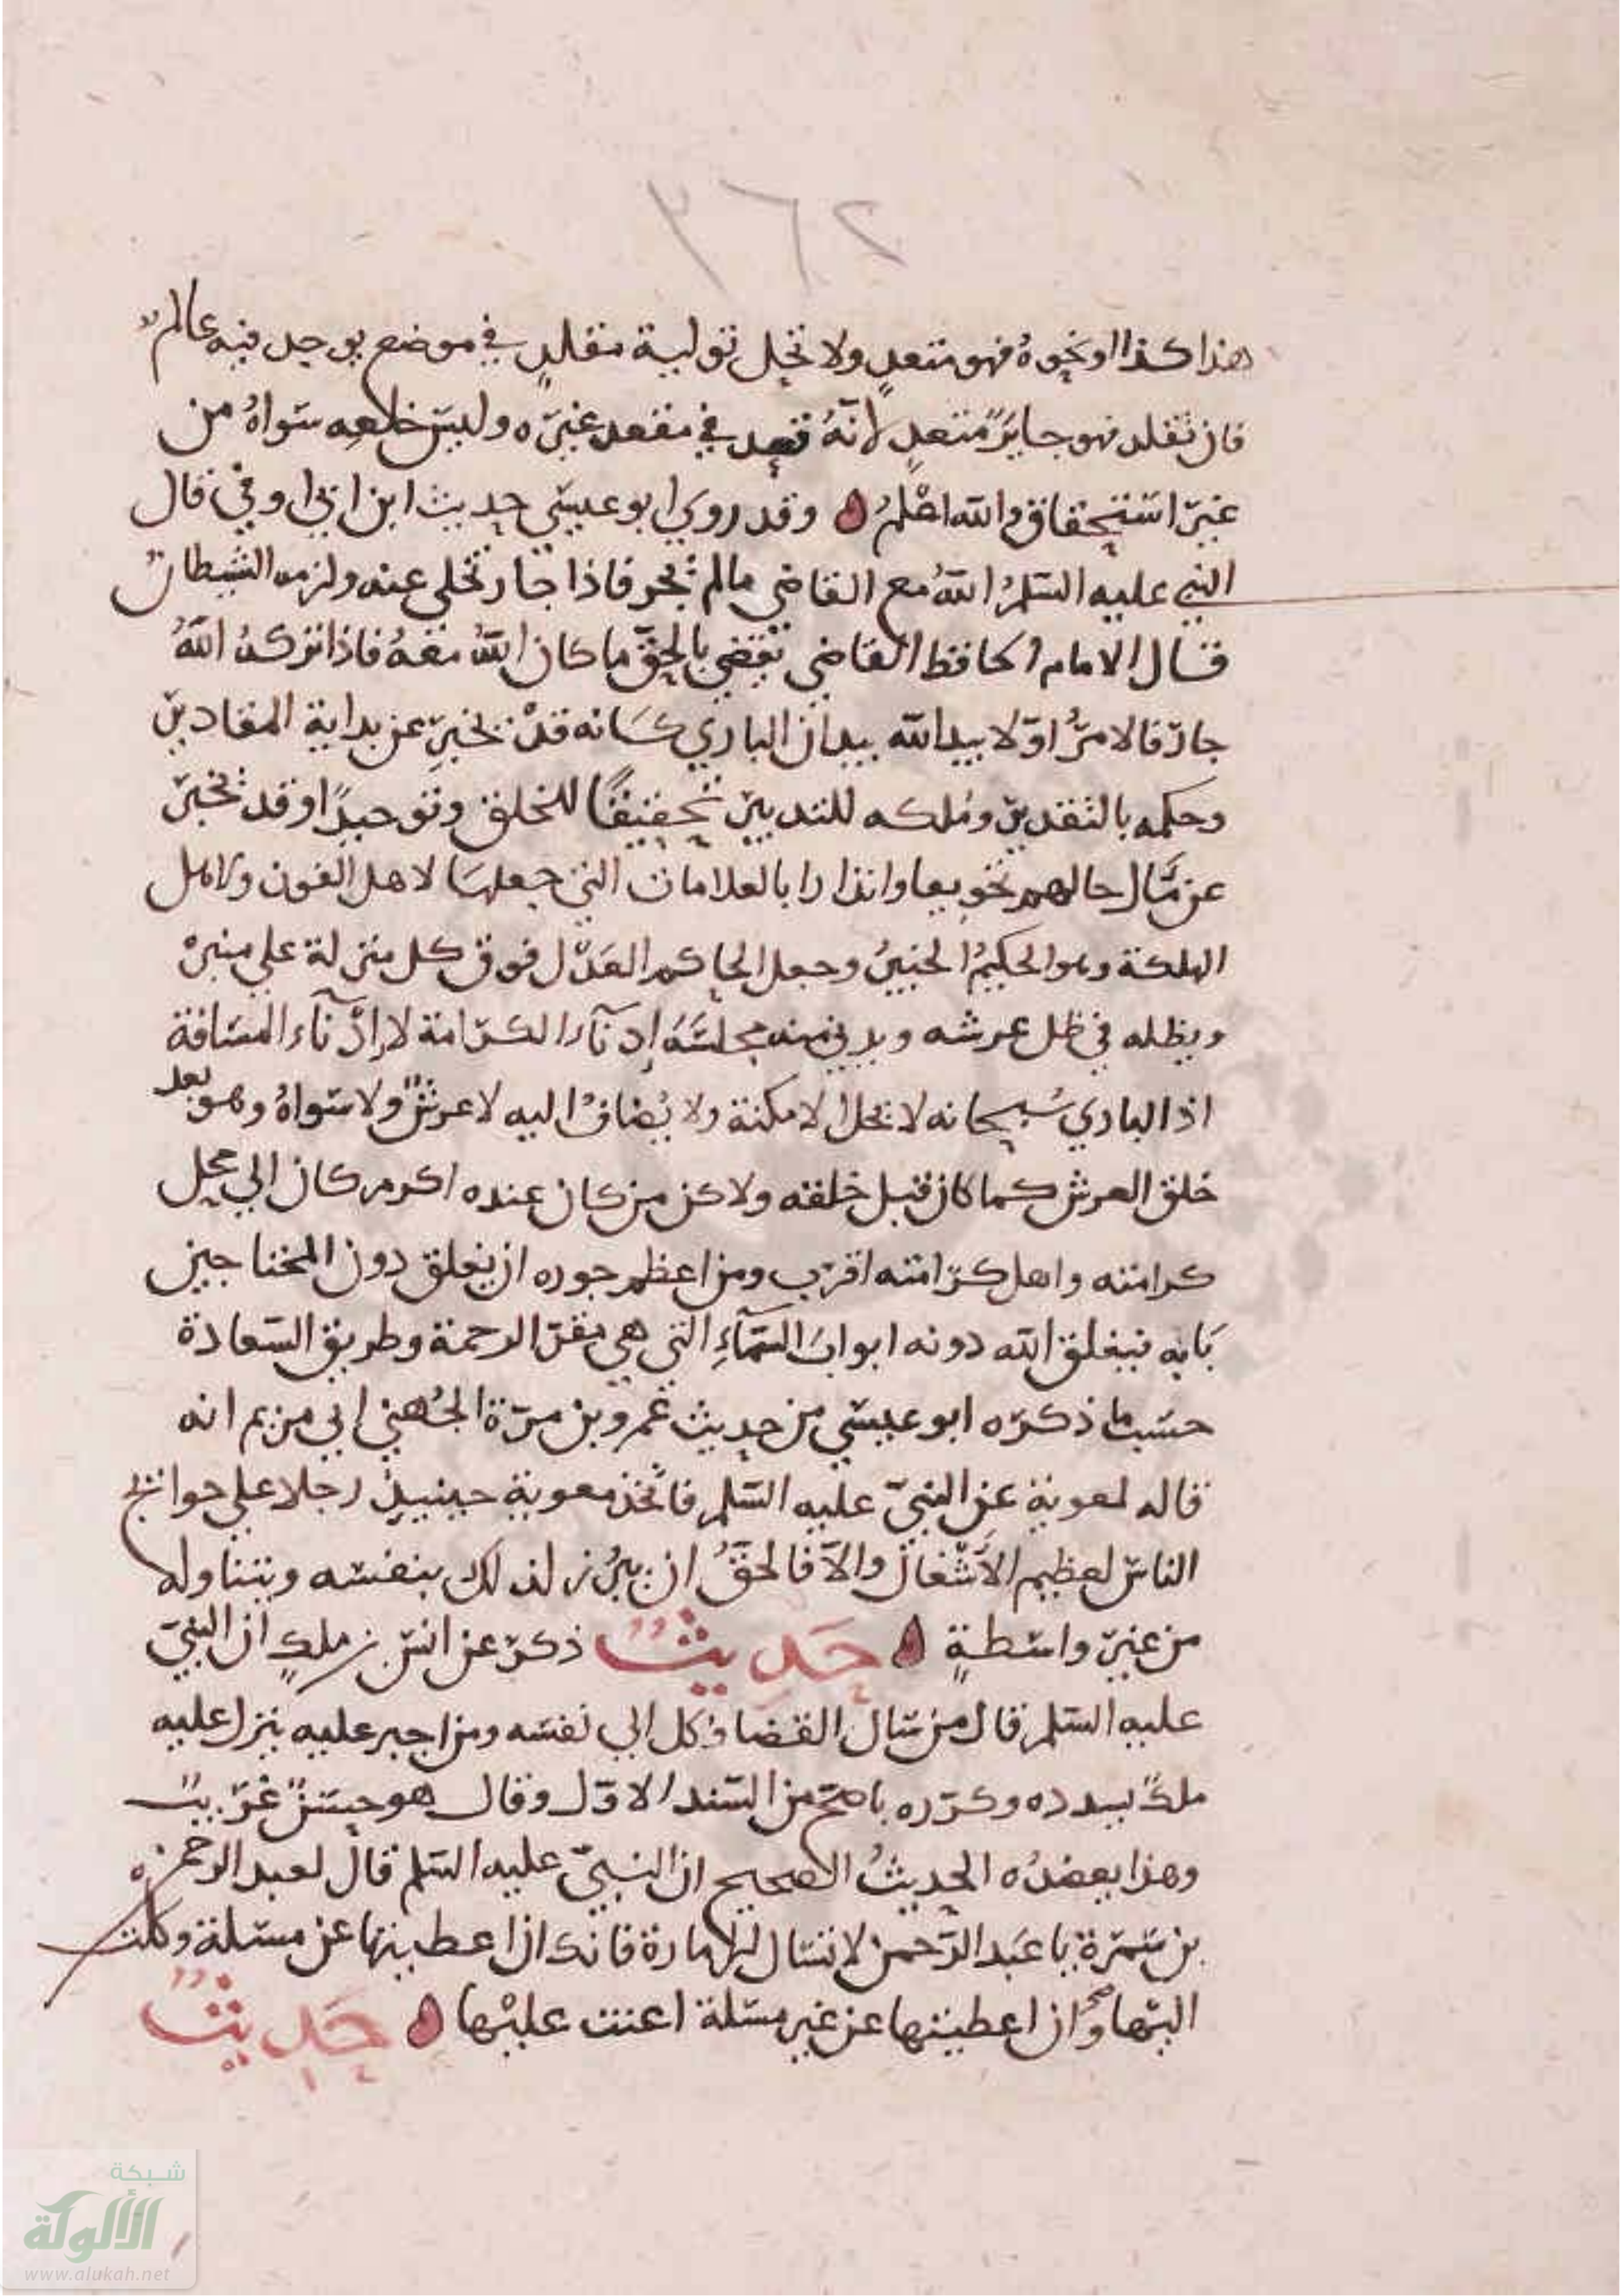 ٢٦٢
هذا كذا او نحوه فهو متعد ولا تحل تولية مقلد في موضع يوجد فيه عالم
فان تقلد فهو جاير متعد لانه قعد في مقعد غيره ولبس خلعه سواه من
غير استحقاق والله اعلم وقد روي ابو عيسي حديث ابن ابي اوفي قال
النبي عليه السلم الله مع القاضي مالم يجر فاذا جار تخلي عنه ولزمه الشيطان
قال الامام الحافظ القاضي يقضي بالحق ما كان الله معه فاذا تركه الله
جار فالامر اولا بيد الله بيد ان الباري سبحانه قد يخبر عن بداية المقادير
وحكمه بالتقدير وملكه للتدبير تحقيقا للخلق وتوحيدا وقد يخبر
عن مآل حالهم تخويفا وانذارا بالعلامات التي جعلها لاهل الفوز ولاهل
الهلكة وهو الحكيم الخبير وجعل الحاكم العدل فوق كل منزلة علي منبر
ويظله في ظل عرشه ويدني منه مجلسه إدنآء الكرامة لا إدنآء المسافة
اذ الباري سبحانه لا تحله الامكنة ولا يضاف اليه لا عرش ولا سواه وهو بعد
خلق العرش كما كان قبل خلقه ولاكن من كان عنده اكرم كان الي محل
كرامته واهل كرامته اقرب ومن اعظم جوره ان يغلق دون المحتاجين
بابه فيغلق الله دونه ابواب السمآء التي هي مقر الرحمة وطريق السعادة
حسب ما ذكره ابو عيسي من حديث عمرو بن مرة الجهني ابي مريم انه
قاله لمعوية عن النبي عليه السلم فاتخذ معوية حينيذ رجلا علي حوائج
الناس لعظيم الأشغال والا فالحق ان يبرز لذلك بنفسه ويتناوله
من غير واسطة حديث ذكر عن انس بن ملك ان النبي
عليه السلم قال من سال القضا وكل الي نفسه ومن اجبر عليه ينزل عليه
ملك يسدده وكرره باصح من السند الاول وقال هو حسن غريب
وهذا يعضده الحديث الصحيح ان النبي عليه السلم قال لعبد الرحمن
بن سمرة يا عبد الرحمن لا تسال الامارة فانك ان اعطيتها عن مسلة وكلت
اليها وان اعطيتها عن غير مسلة اعنت عليها حديث
شبكة
الألوكة
www.alukah.net